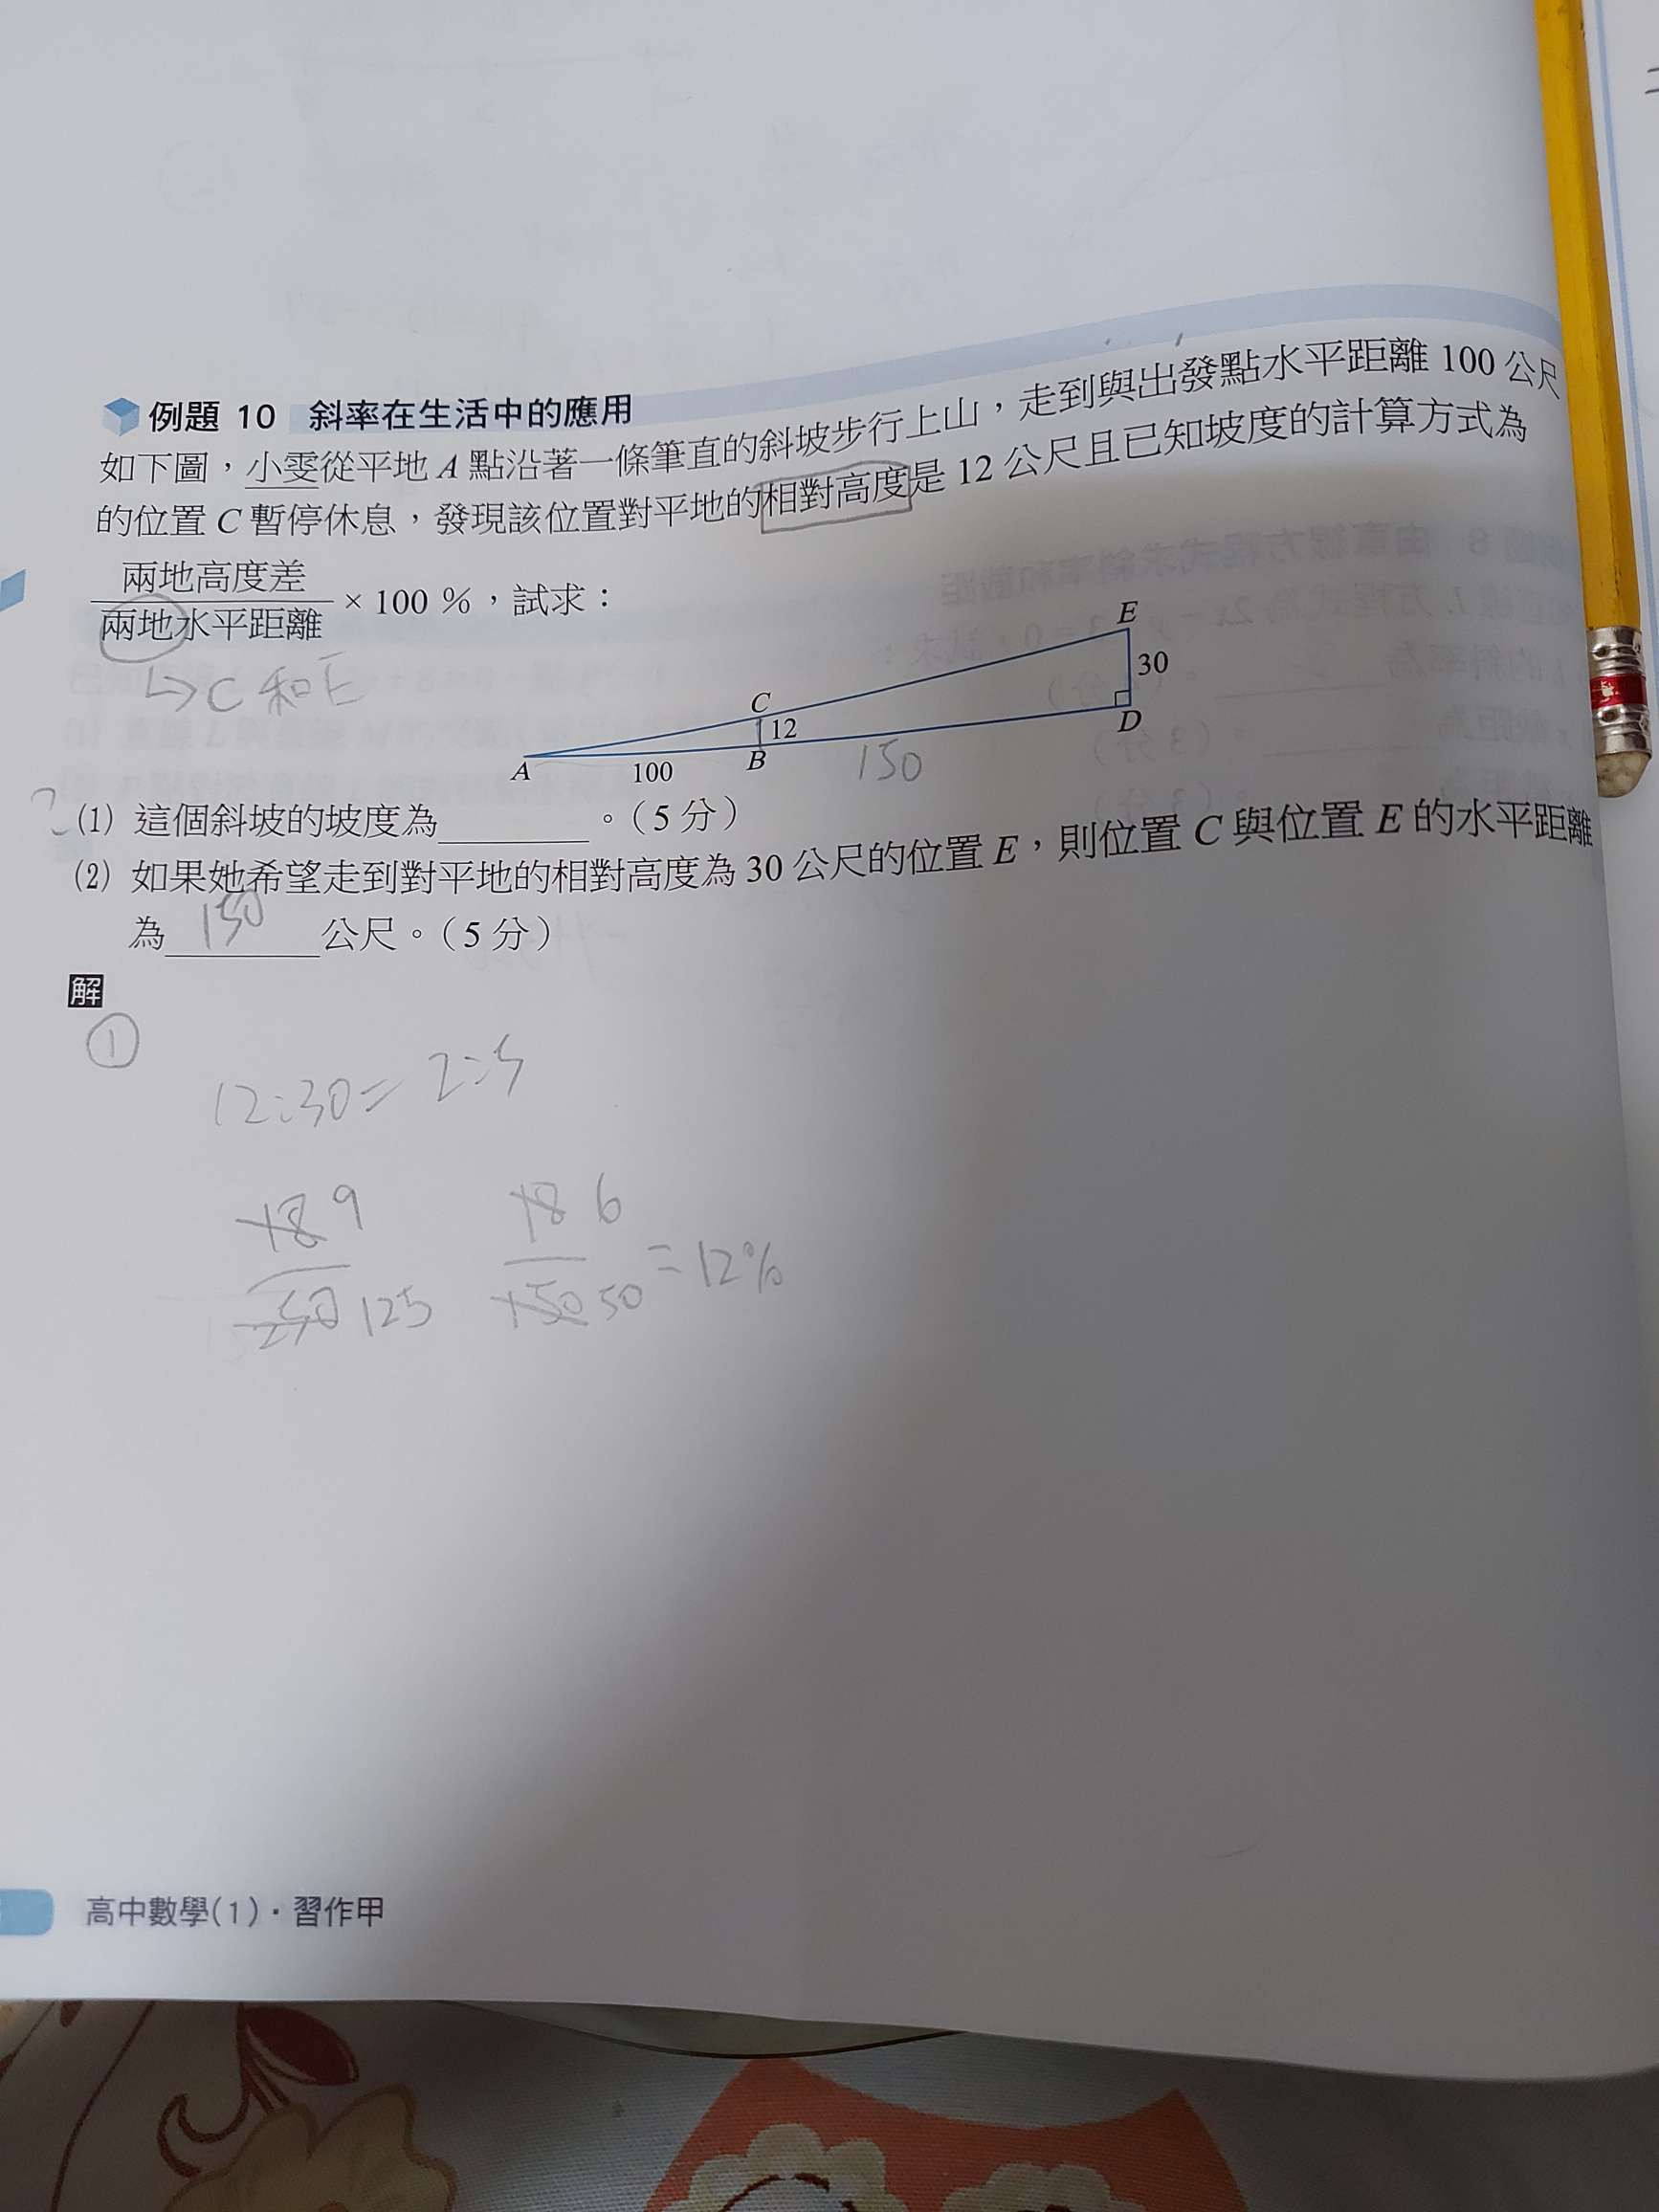 例題 10 斜率在生活中的應用
如下圖，小雯從平地 A 點沿著一條筆直的斜坡步行上山，走到與出發點水平距離 100 公尺
的位置 C 暫停休息，發現該位置對平地的相對高度是 12 公尺且已知坡度的計算方式為
兩地高度差
兩地水平距離
× 100 %，試求：
↳ C 和 E
E
30
C
12
D
A
100
B
150
?
(1) 這個斜坡的坡度為______。（5 分）
(2) 如果她希望走到對平地的相對高度為 30 公尺的位置 E，則位置 C 與位置 E 的水平距離
為 150 公尺。（5 分）
解
①
12:30=2:5
18 9
18 6
250 125
150 50
=12%
高中數學(1)．習作甲